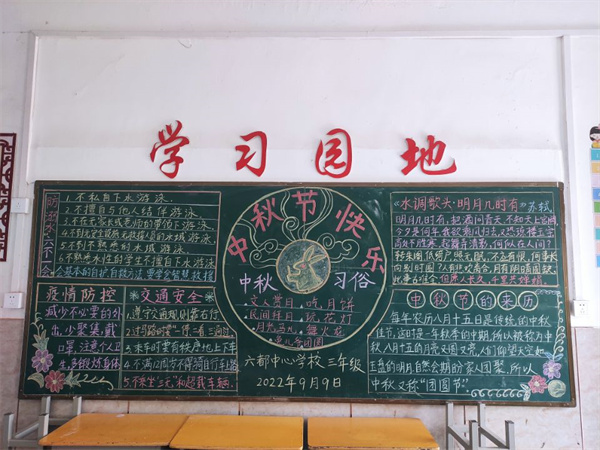 学习园地
防溺水六不一会
1.不私自下水游泳.
2.不擅自与他人结伴游泳.
3.不在无家长或老师的带领下游泳.
4.不到无安全设施无救援人的水域游泳.
5.不到不熟悉的水域游泳.
6.不熟悉水性的学生不擅自下水游泳
会基本的自护自救方法,要学会智慧救援
疫情防控
减少不必要的外
出,少聚集,戴
口罩,注意个卫
生,多锻炼身体
交通安全
1.遵守交通规则靠右行
2.过马路时要"一停二看三通过"
3.乘车时要有秩序地上下车
4.不满12周岁不得骑自行车上路
5.不乘坐"三无"和超载车辆.
中秋节快乐
中秋习俗
文人赏月、吃月饼
民间拜月、玩花灯
月光满儿、舞火龙
六都中心学校三年级
2022年9月9日
《水调歌头·明月几时有》苏轼
明月几时有,把酒问青天,不知天上宫阙,
今夕是何年,我欲乘风归去,又恐琼楼玉宇,
高处不胜寒,起舞弄清影,何似在人间?
转朱阁,低绮户,照无眠,不应有恨,何事长
向别时圆?人有悲欢离合,月有阴晴圆缺,
此事古难全。但愿人长久,千里共婵娟。
中秋节的来历
每年农历八月十五日是传统的中秋
佳节,这时是一年秋季的中期,所以被称为中
秋八月十五的月亮又圆又亮,人们仰望天空如
玉盘的明月自然会期盼家人团聚,所以
中秋又称"团圆节"。